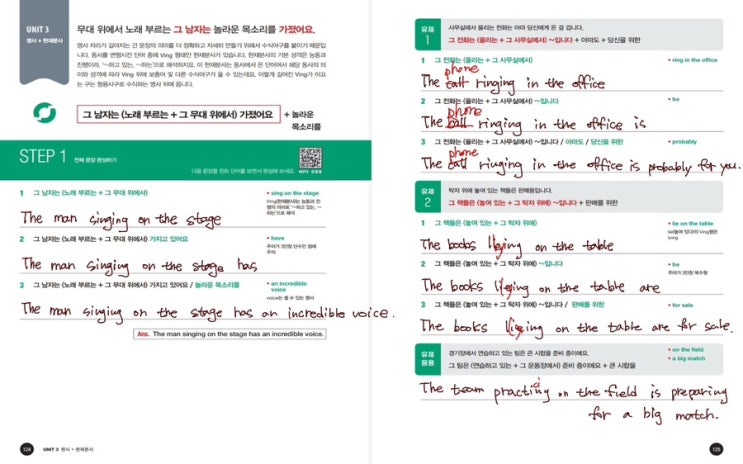 UNIT 3
명사 + 현재분사
무대 위에서 노래 부르는 그 남자는 놀라운 목소리를 가졌어요.
명사 자리가 길어지는 건 문장의 의미를 더 정확하고 자세히 만들기 위해서 수식어구를 붙이기 때문입
니다. 동사를 변형시킨 단어 중에 Ving 형태인 현재분사가 있습니다. 현재분사의 기본 성격은 능동과
진행이라, '~하고 있는, ~하는'으로 해석하지요. 이 현재분사는 동사에서 온 단어여서 해당 동사의 의
미와 성격에 따라 Ving 뒤에 보충어 및 다른 수식어구가 올 수 있는데요, 이렇게 길어진 Ving가 이끄
는 구는 형용사구로 수식하는 명사 뒤에 옵니다.
그 남자는 (노래 부르는 + 그 무대 위에서) 가졌어요 + 놀라운
목소리를
STEP 1 전체 문장 완성하기
다음 문장을 힌트 단어를 보면서 완성해 보세요.
1 그 남자는 (노래 부르는 + 그 무대 위에서)
• sing on the stage
Ving(현재분사)는 능동과 진
행의 의미로 '~하고 있는, ~
하는'으로 해석
The man singing on the stage
2 그 남자는 (노래 부르는 + 그 무대 위에서) 가지고 있어요
• have
주어가 3인칭 단수인 점에
주의
The man singing on the stage has
3 그 남자는 (노래 부르는 + 그 무대 위에서) 가지고 있어요 / 놀라운 목소리를
• an incredible
voice
voice는 셀 수 있는 명사
The man singing on the stage has an incredible voice.
Ans. The man singing on the stage has an incredible voice.
124 UNIT 3 명사 + 현재분사
유제
1
사무실에서 울리는 전화는 아마 당신에게 온 걸 겁니다.
그 전화는 (울리는 + 그 사무실에서) ~입니다 + 아마도 + 당신을 위한
1 그 전화는 (울리는 + 그 사무실에서)
• ring in the office
phone
The call ringing in the office
2 그 전화는 (울리는 + 그 사무실에서) ~입니다
• be
phone
The call ringing in the office is
3 그 전화는 (울리는 + 그 사무실에서) ~입니다 / 아마도 / 당신을 위한
• probably
phone
The call ringing in the office is probably for you.
유제
2
탁자 위에 놓여 있는 책들은 판매용입니다.
그 책들은 (놓여 있는 + 그 탁자 위에) ~입니다 + 판매를 위한
1 그 책들은 (놓여 있는 + 그 탁자 위에)
• lie on the table
lie(놓여 있다)의 Ving형은
lying
The books lying on the table
2 그 책들은 (놓여 있는 + 그 탁자 위에) ~입니다
• be
주어가 3인칭 복수형
The books lying on the table are
3 그 책들은 (놓여 있는 + 그 탁자 위에) ~입니다 / 판매를 위한
• for sale
The books lying on the table are for sale.
유제
응용
경기장에서 연습하고 있는 팀은 큰 시합을 준비 중이에요.
그 팀은 (연습하고 있는 + 그 운동장에서) 준비 중이에요 + 큰 시합을
• on the field
• a big match
The team practicing on the field is preparing
for a big match.
125